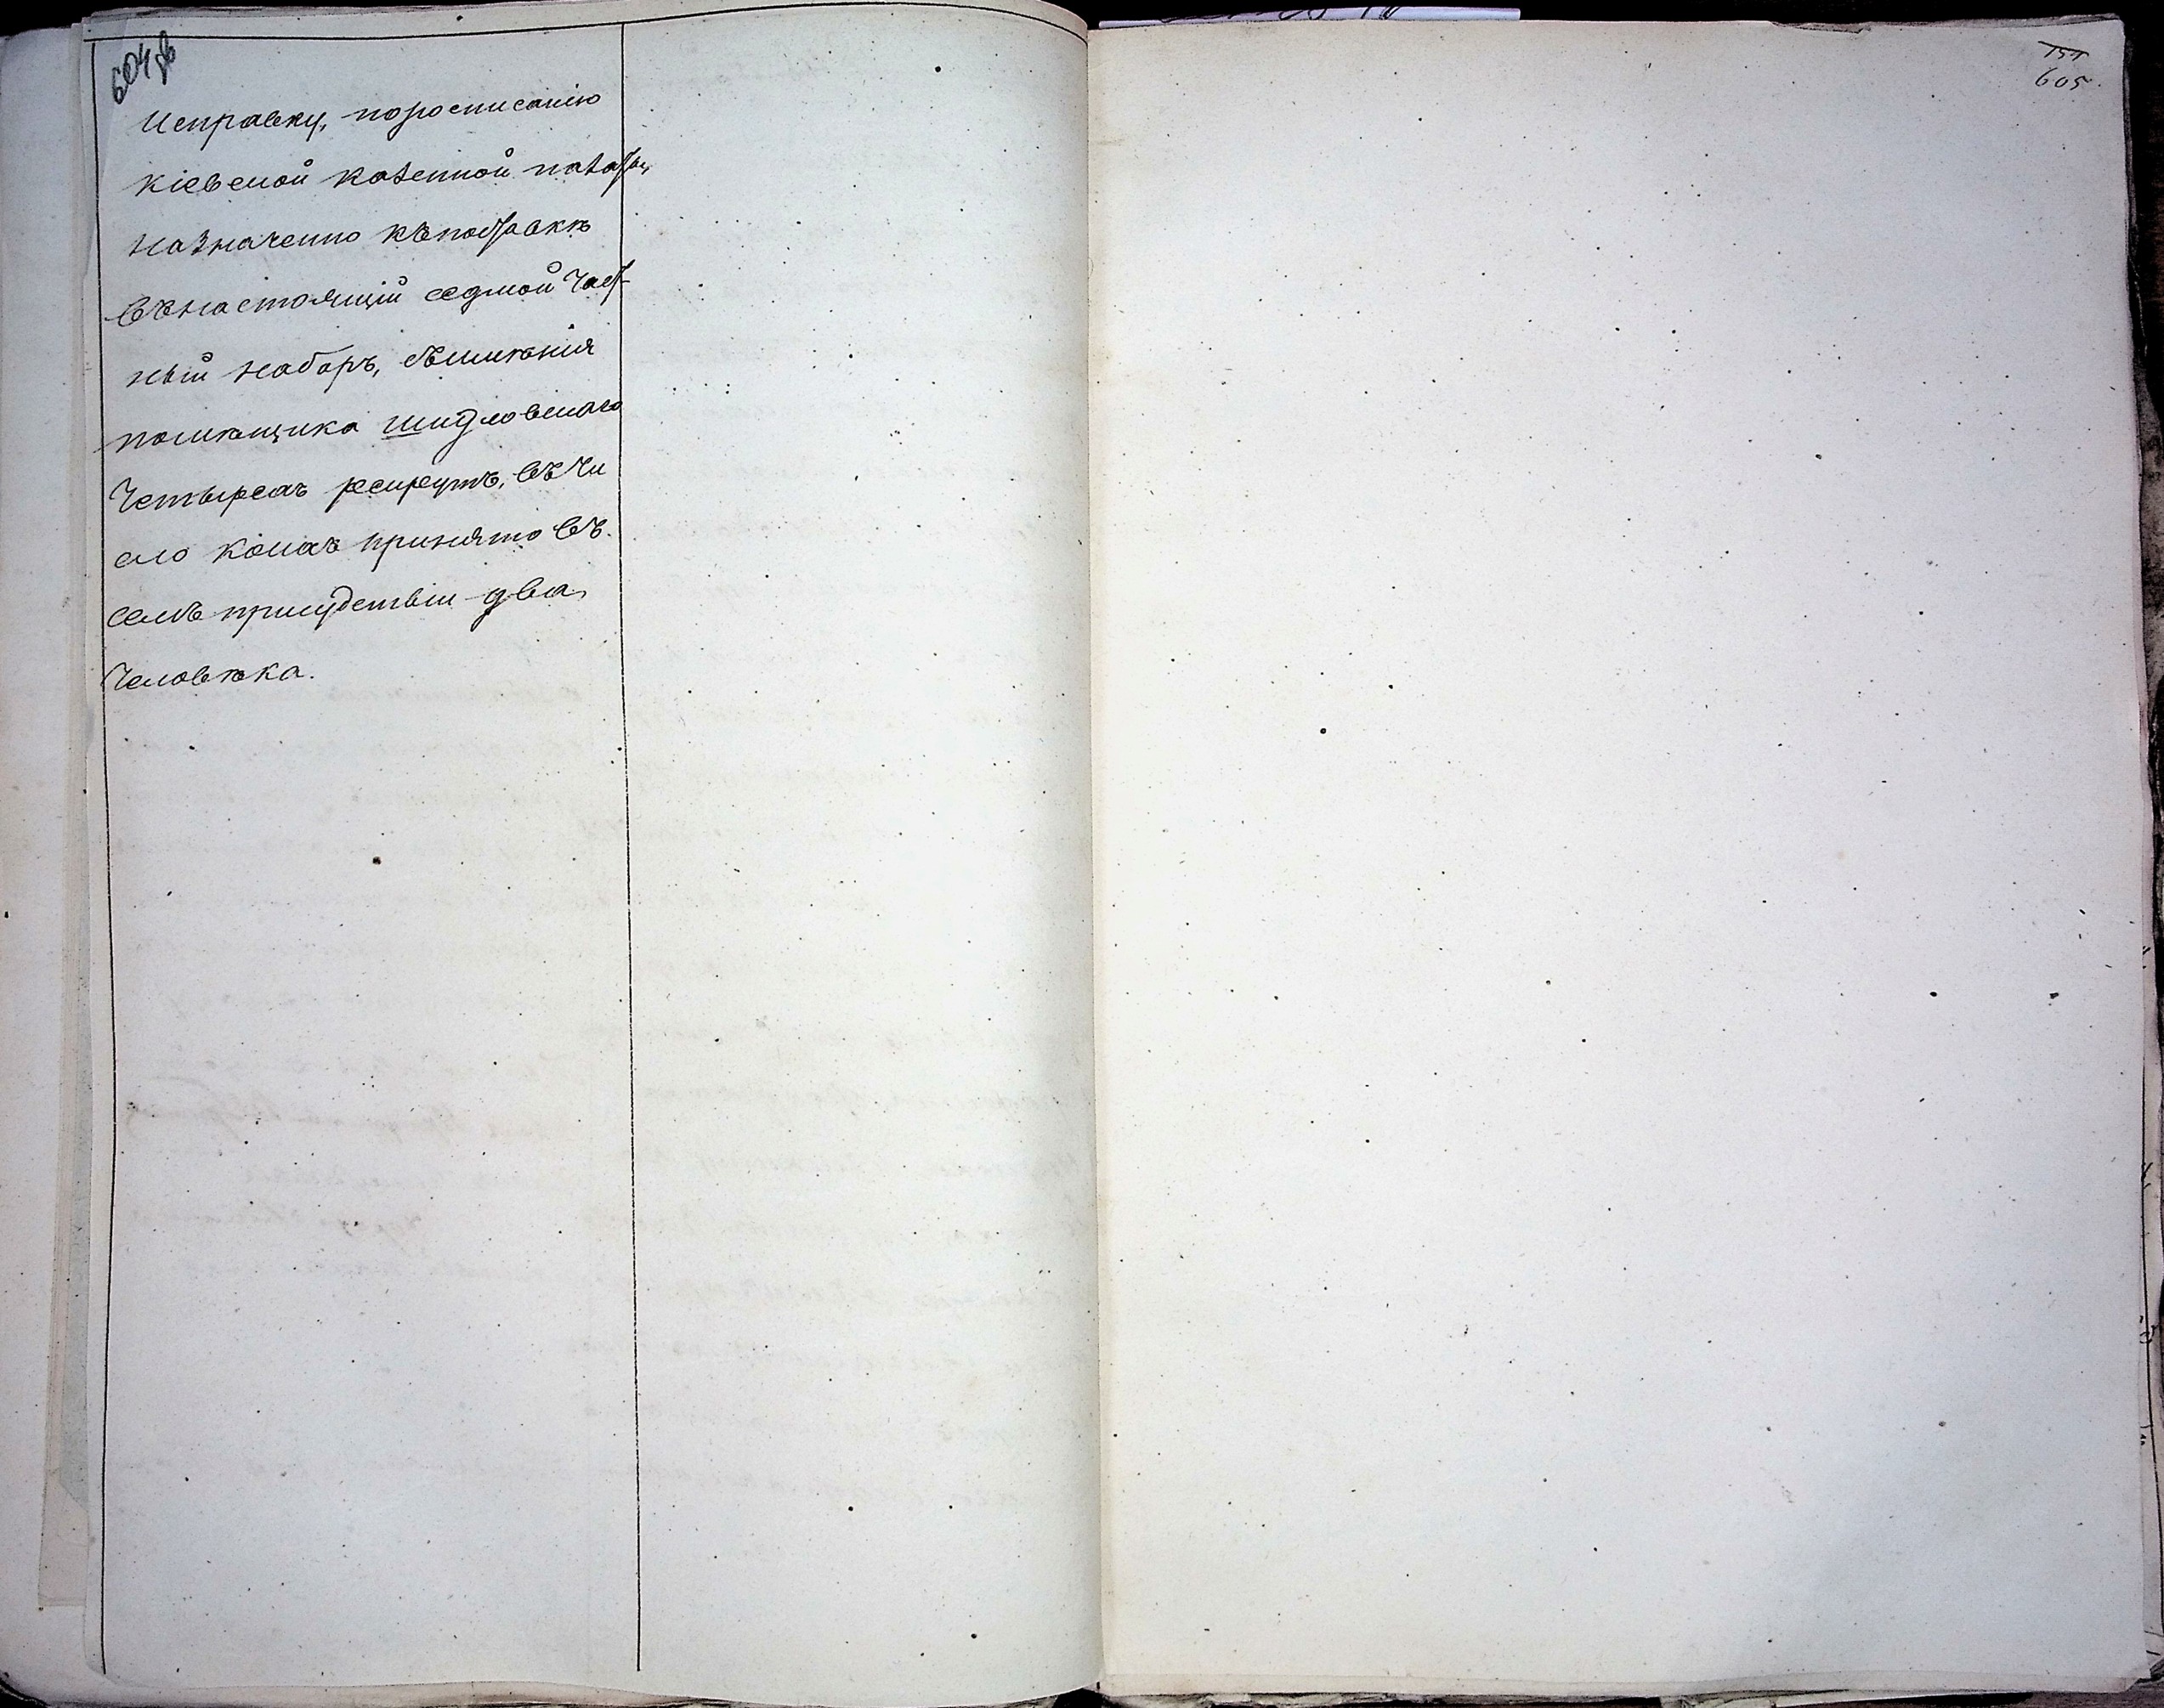 604 об
151
605.
Исправку, поросписанію
кіевской казенной палаты,
назначенно къпоставкѣ
въ настоящій седмой част-
ный наборъ, съимѣнія
помѣщика шидловскаго
Четырехъ рекрутъ, въ чи
сло коихъ принято въ
семъ присудствіи два
Человѣка.